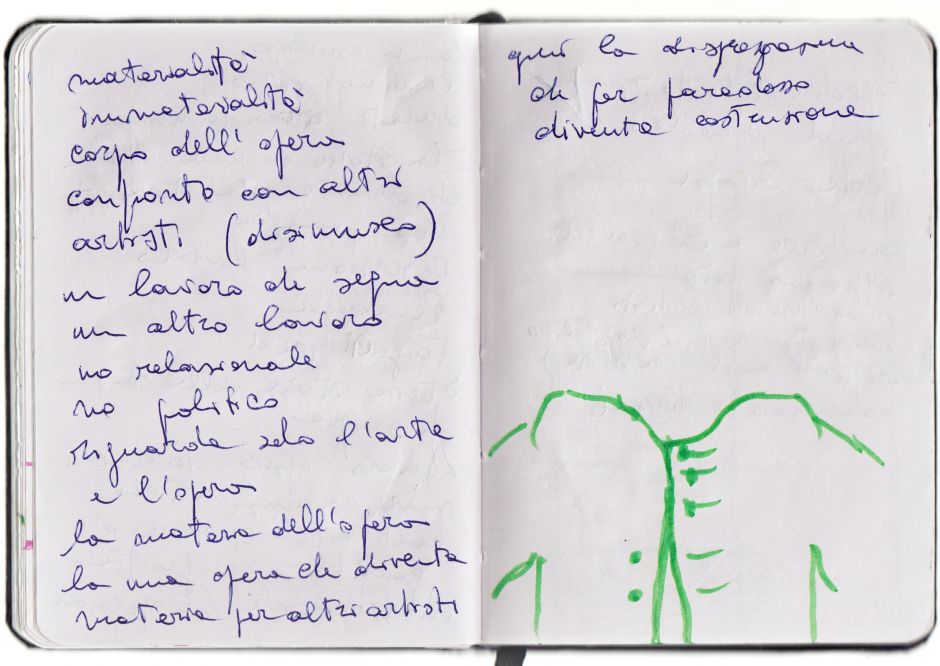 materialità
immaterialità
corpo dell'opera
confronto con altri
artisti (disimuseo)
un lavoro che segna
un altro lavoro
no relazionale
no politico
riguarda solo l'arte
e l'opera
la materia dell'opera
la mia opera che diventa
materia per altri artisti
qui la
che per paradosso
diventa costruzione